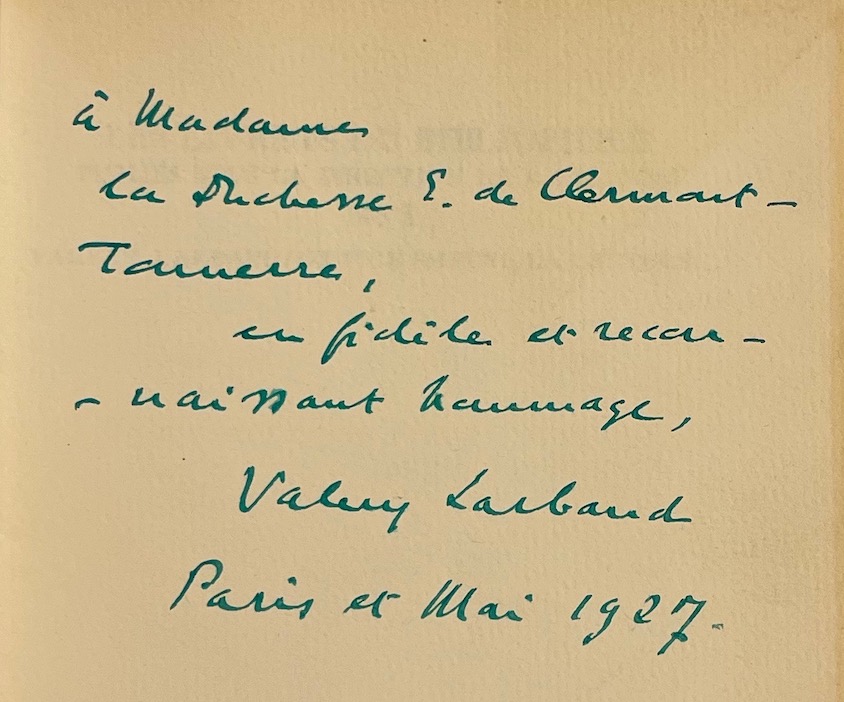 à Madame
la Duchesse E. de Clermont-
Tonnerre,
en fidèle et recon-
- naissant hommage,
Valery Larbaud
Paris et Mai 1927.